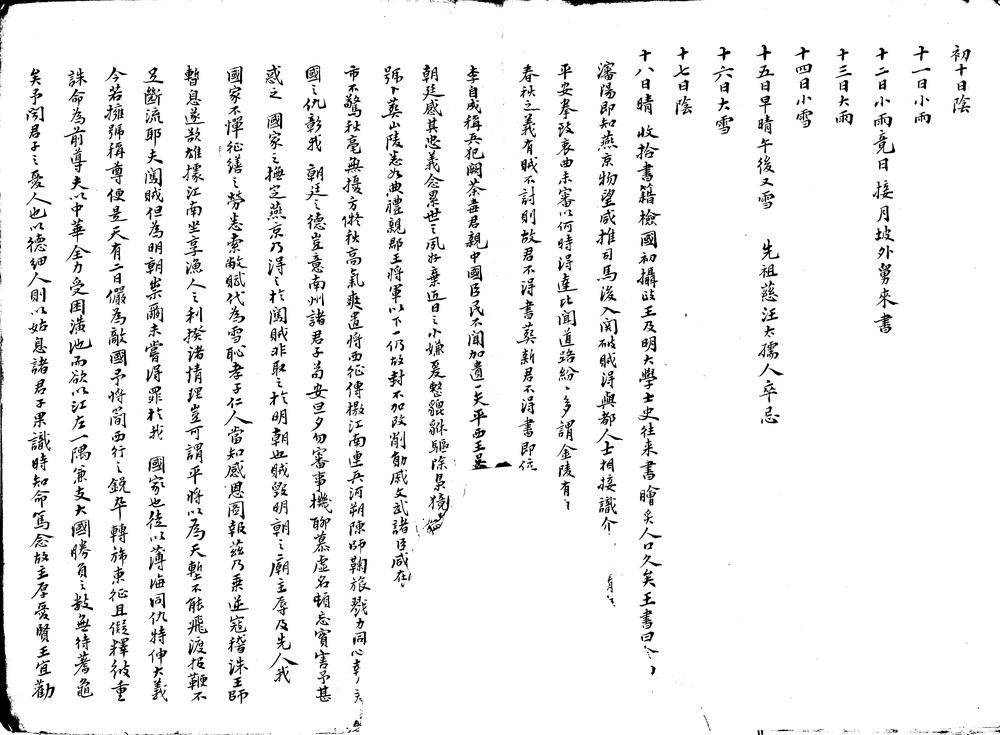 初十日陰
十一日小雨
十二日小雨竟日 接月坡外舅來書
十三日大雨
十四日小雪
十五日早晴午後又雪 先祖慈汪太孺人卒忌
十六日大雪
十七日陰
十八日晴 收拾書籍檢國初攝政王及明大學士史往来書膾炙人口久矣王書曰
瀋陽即知燕京物望咸推司馬後入関破賊得與都人士相接識介
平安拳致衷曲未審以何時得達比聞道路紛〻多謂金陵有
春秋之義有賊不討則故君不得書葬新君不得書即位
李自成稱兵犯闕荼毒君親中國臣民不聞加遺一矢平西王吴
朝廷感其忠義念累世之夙好棄近日之小嫌爰整貔貅驅除梟獍
號卜葬山陵悉如典禮親郡王將軍以下一仍故封不加改削勛戚文武諸臣咸在
市不驚秋毫無擾方擬秋高氣爽遣將西征傳檄江南連兵河朔陳師鞠旅戮力同心
國之仇彰我 朝廷之德豈意南州諸君子苟安旦夕勿審事機聊慕虛名頓忘實害予甚
惑之 國家之撫定燕京乃得之於闖賊非取之於明朝也賊毀明朝之廟主辱及先人我
國家不憚征繕之勞悉索敝賦代為雪恥孝子仁人當知感恩圖報茲乃乘逆寇稽誅王師
暫息遂欲雄據江南坐享漁人之利揆諸情理豈可謂平將以為天塹不能飛渡投鞭不
足斷流耶夫闖賊但為明朝祟爾未嘗得罪於我 國家也徒以薄海同仇特伸大義
今若擁號稱尊便是天有二日儼為敵國予將簡西行之銳卒轉旆東征且假釋彼重
誅命為前導夫以中華全力受困潢池而欲以江左一隅兼支大國勝負之數無待蓍龜
矣予聞君子之愛人也以德細人則以姑息諸君子果識時知命篤念故主厚愛賢王宜勸